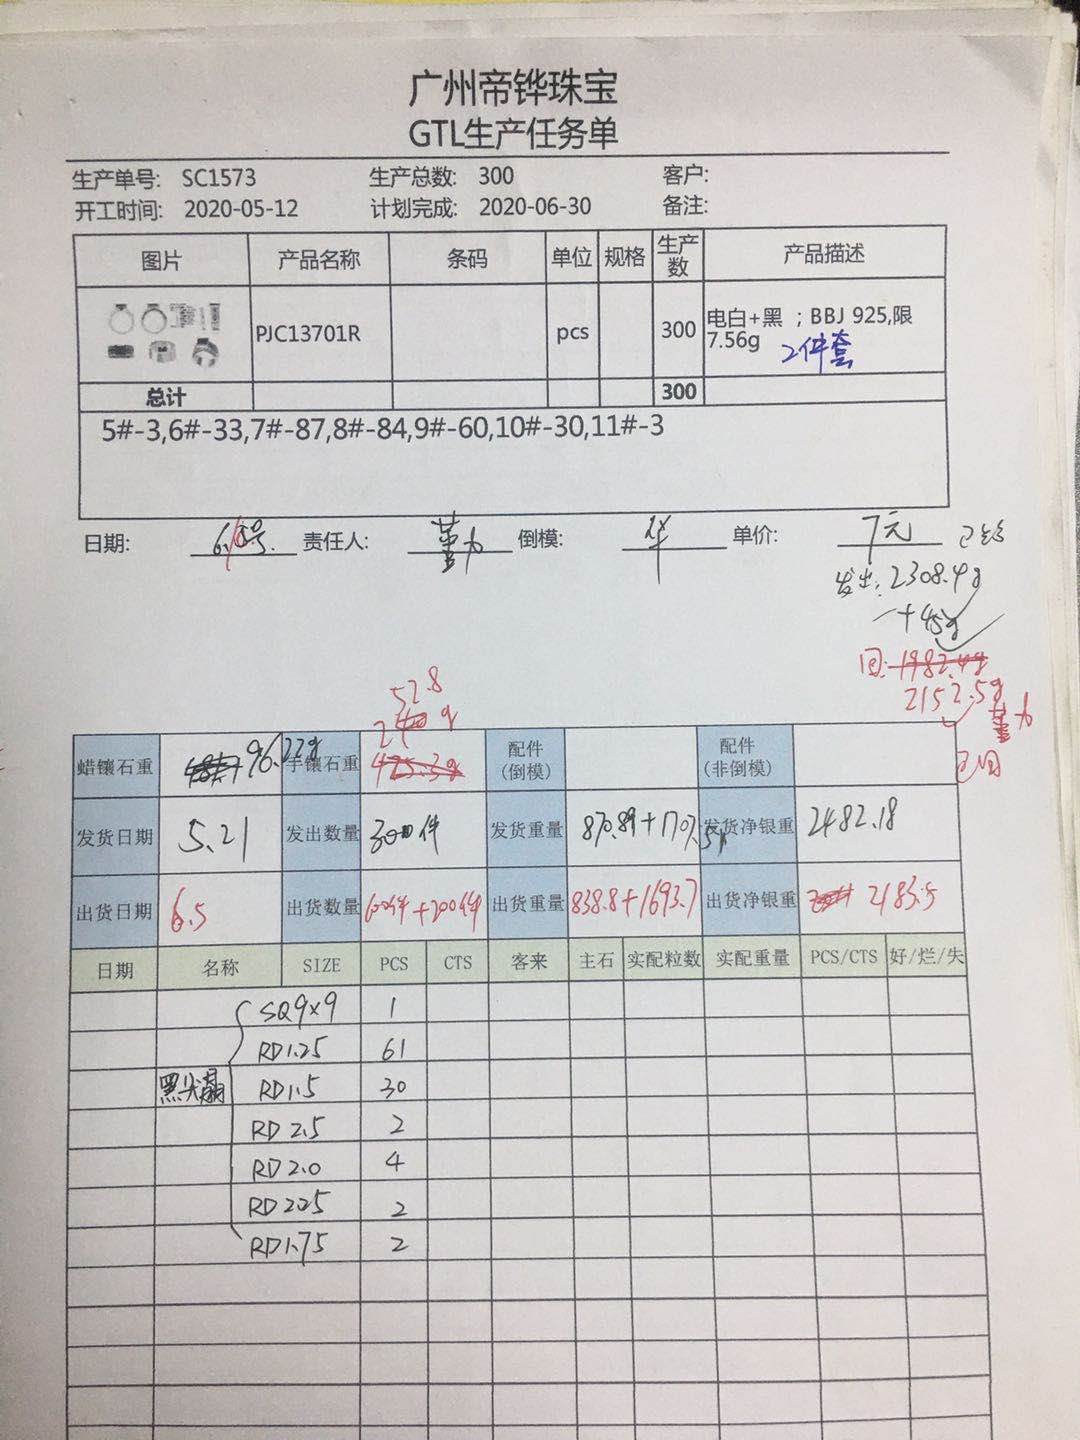 广州帝铧珠宝
GTL生产任务单
生产单号: SC1573 生产总数: 300 客户:
开工时间: 2020-05-12 计划完成: 2020-06-30 备注:
图片 产品名称 条码 单位 规格 生产数 产品描述
PJC13701R pcs 300 电白+黑 ;BBJ 925,限
7.56g 2件套
总计 300
5#-3,6#-33,7#-87,8#-84,9#-60,10#-30,11#-3
日期: 责任人: 倒模: 华 单价: 7元
发出: 2308.4g
+45g
回: 1982.4g
2152.5g
52.8
蜡镶石重 96.22g 手镶石重 425.3g 配件(倒模) 配件(非倒模)
已回
发货日期 5.21 发出数量 300件 发货重量 870.89+1707.5 发货净银重 2482.18
出货日期 6.5 出货数量 100件+200件 出货重量 838.8+1693.7 出货净银重 2183.5
日期 名称 SIZE PCS CTS 客来 主石 实配粒数 实配重量 PCS/CTS 好/烂/失
SQ9×9 1
RD1.25 61
黑尖晶 RD1.5 30
RD2.5 2
RD2.0 4
RD2.25 2
RD1.75 2